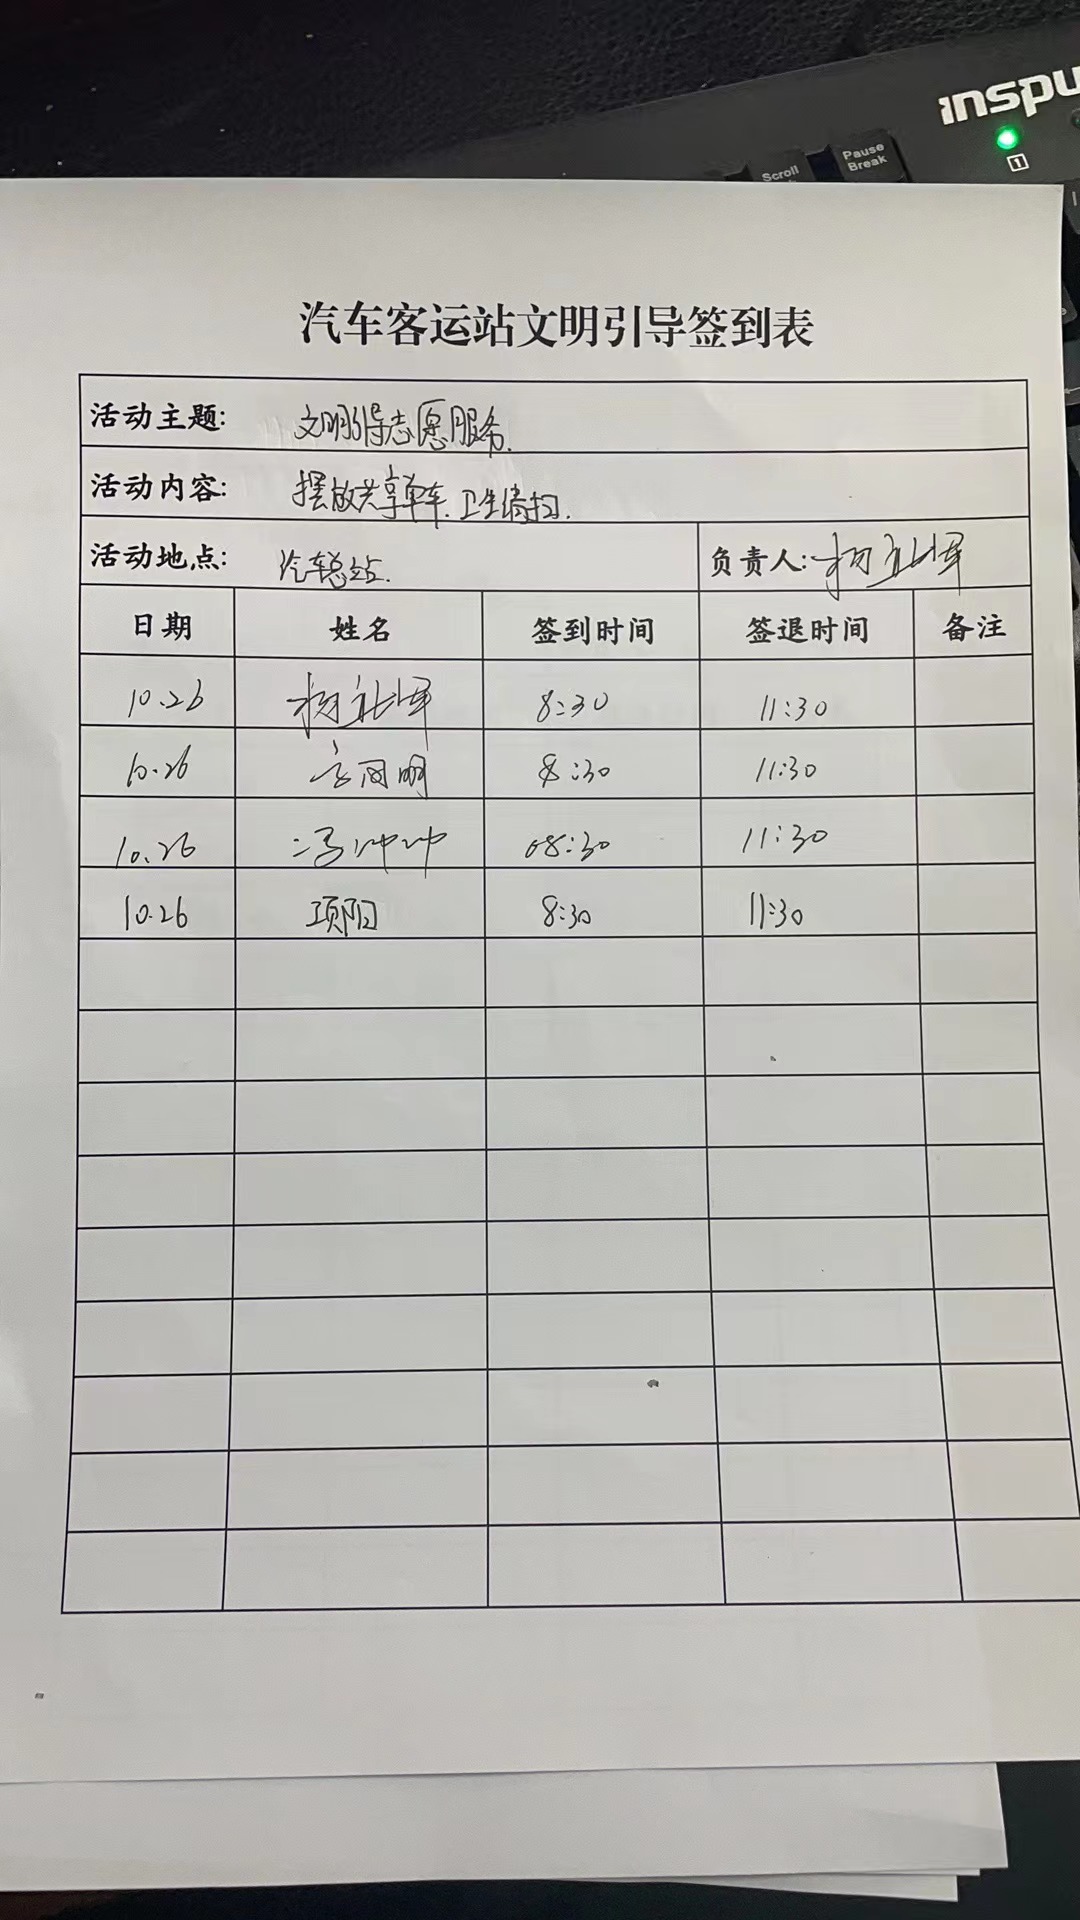 inspu
Scroll
Pause
Break
1
汽车客运站文明引导签到表
活动主题: 文明引导志愿服务.
活动内容: 摆放共享单车.卫生清扫.
活动地点: 汽车总站. 负责人:杨
日期 姓名 签到时间 签退时间 备注
10.26 杨 8:30 11:30
10.26 明 8:30 11:30
10.26 冯冲冲 08:30 11:30
10.26 项阳 8:30 11:30